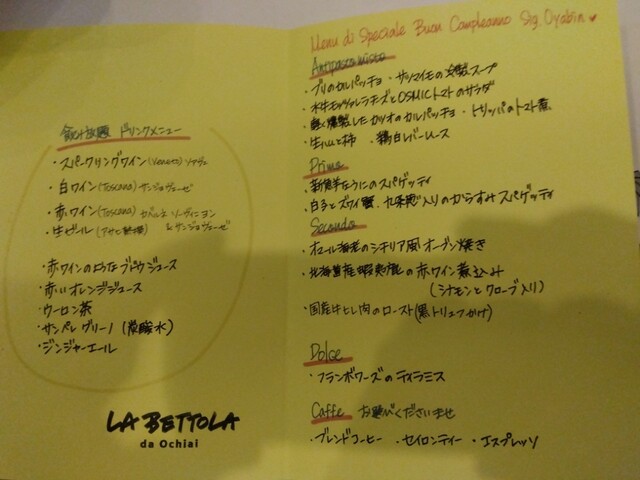 飲み放題 ドリンクメニュー
・スパークリングワイン(Veneto)ソアヴェ
・白ワイン(Toscana)サンジョヴェーゼ
・赤ワイン(Toscana)カベルネソーヴィニヨン
&サンジョヴェーゼ
・生ビール(アサヒ熟撰)
・赤ワインのようなブドウジュース
・赤いオレンジジュース
・ウーロン茶
・サンペレグリーノ(炭酸水)
・ジンジャーエール
LA BETTOLA
da Ochiai
Menu di Speciale Buon Compleanno Sig. Oyabin ♥
Antipasto misto
・ブリのカルパッチョ ・サツマイモの冷製スープ
・水牛モッツァレラチーズとOSMICトマトのサラダ
・軽く燻製したカツオのカルパッチョ ・トリッパのトマト煮
・生ハムと柿 ・鶏白レバームース
Primo
・新鮮なうにのスパゲッティ
・白子とズワイ蟹、九条葱入りのからすみスパゲッティ
Secondo
・オマール海老のシチリア風オーブン焼き
・北海道産蝦夷鹿の赤ワイン煮込み
(シナモンとクローブ入り)
・国産牛ヒレ肉のロースト(黒トリュフがけ)
Dolce
・フランボワーズのティラミス
Caffe お選びくださいませ
・ブレンドコーヒー ・セイロンティー ・エスプレッソ